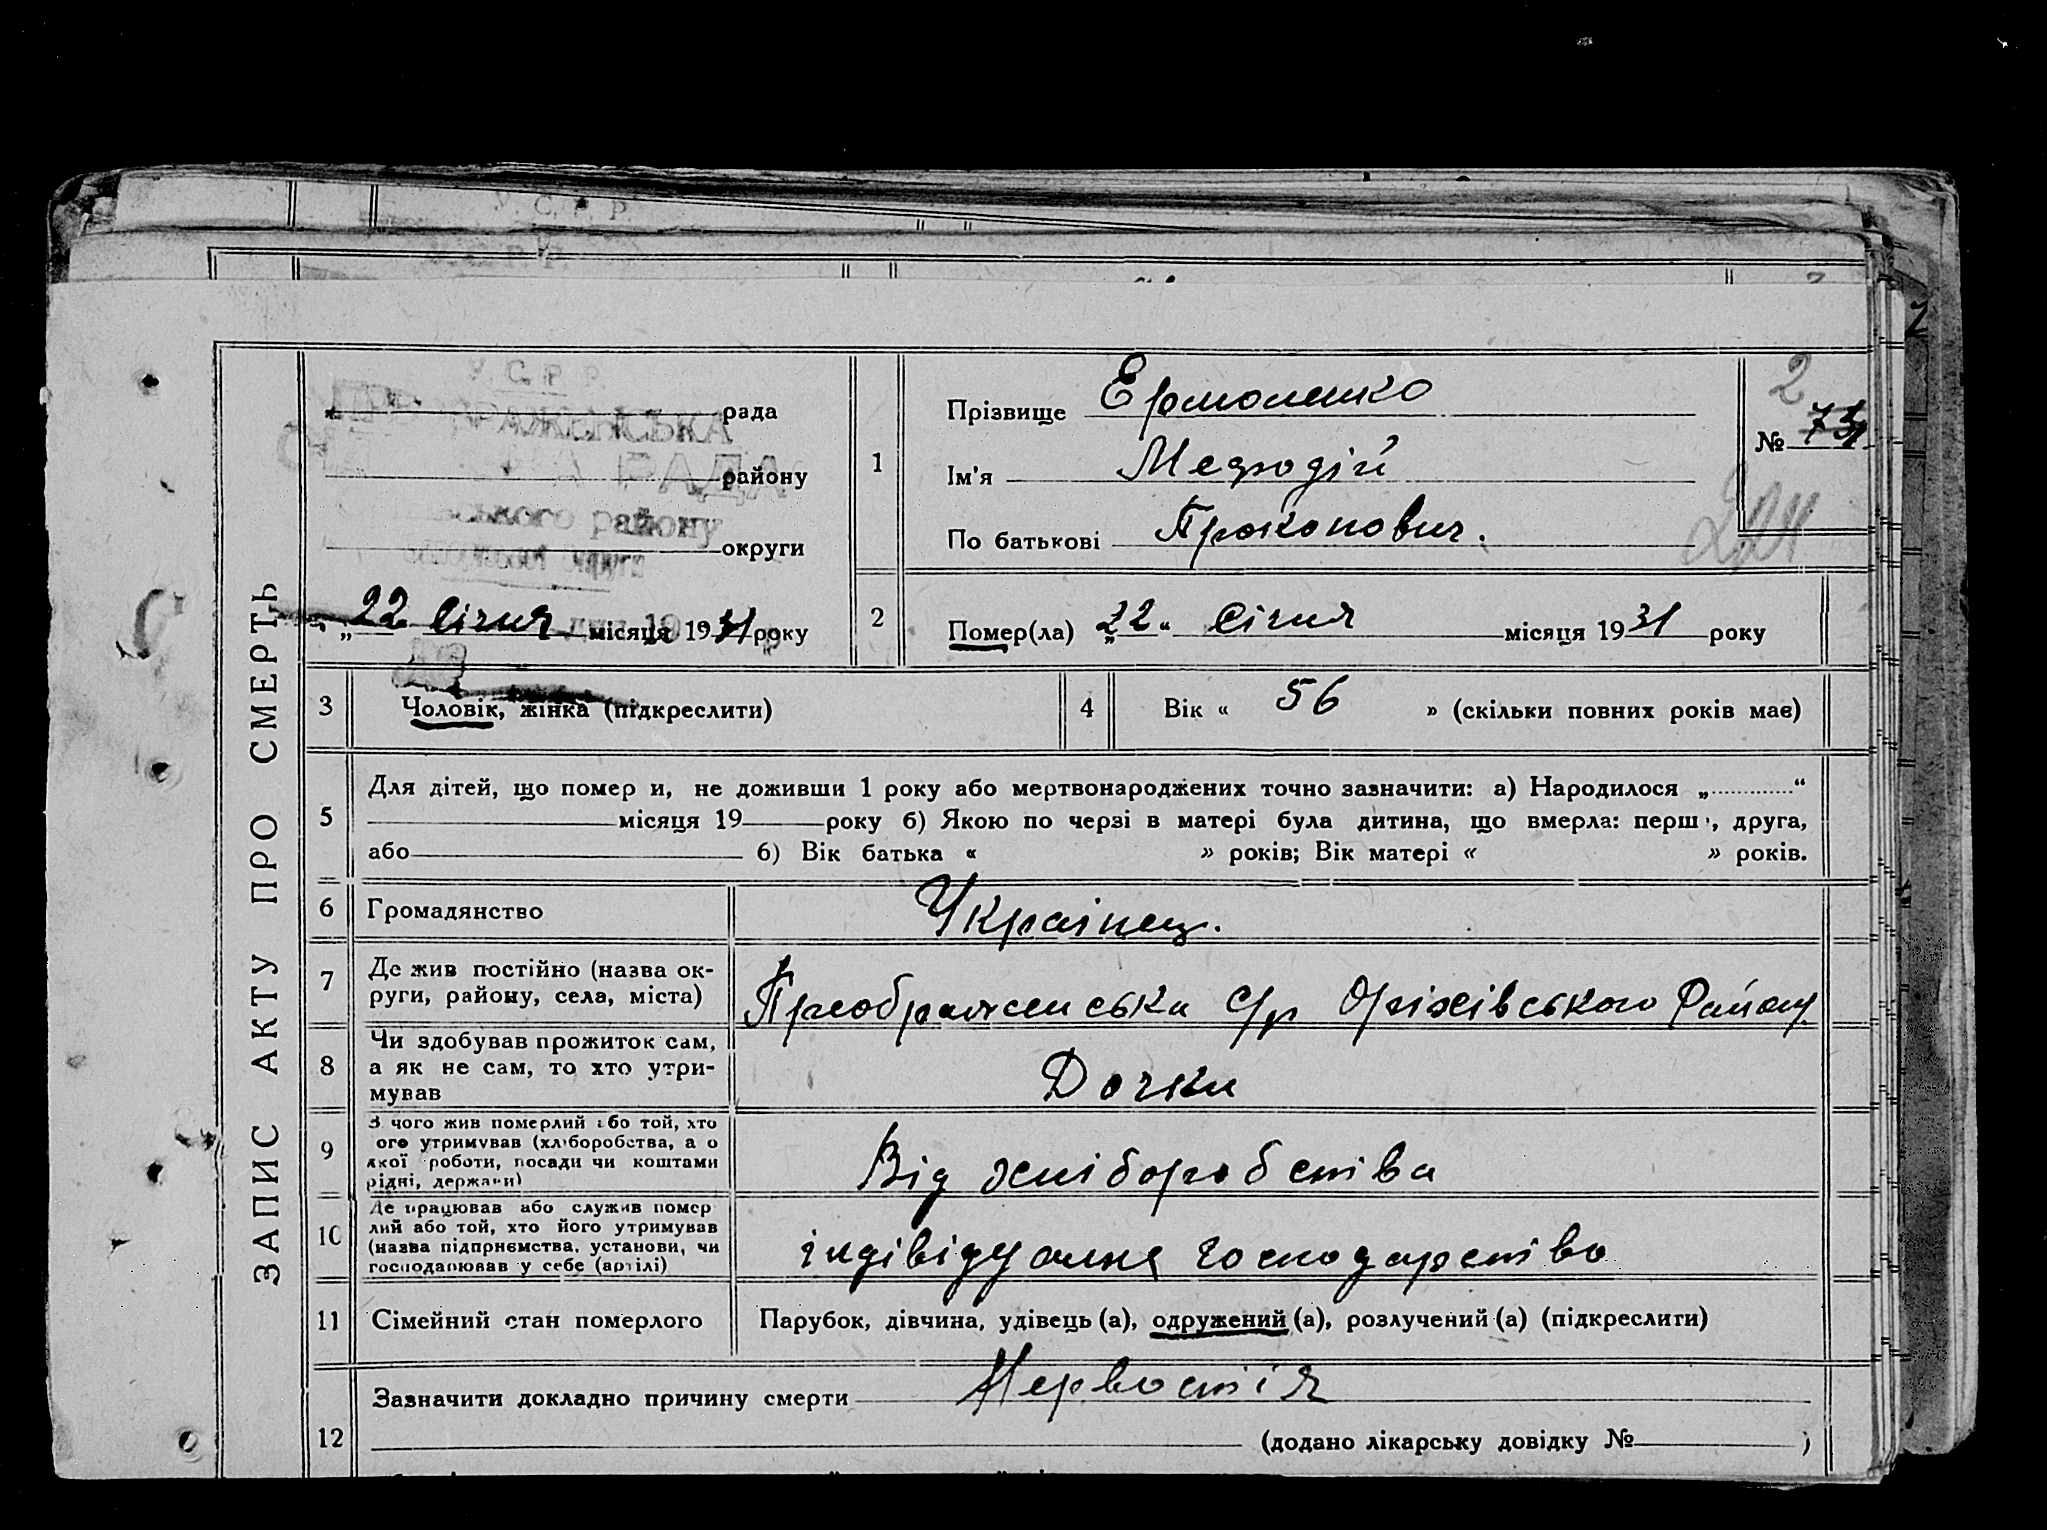 У. С. Р. Р.
рада
РАДА
району
ського району
округи
„22 Січня місяця 1931 року
ЗАПИС АКТУ ПРО СМЕРТЬ
1
Прізвище Ермоленко
Ім'я Мефодій
По батькові Прокопович.
2
№ 73
221
2
Помер(ла) „22“ Січня місяця 1931 року
3
Чоловік, жінка (підкреслити)
4
Вік « 56 » (скільки повних років має)
5
Для дітей, що помер и, не доживши 1 року або мертвонароджених точно зазначити: а) Народилося „ “
місяця 19 року б) Якою по черзі в матері була дитина, що вмерла: перш , друга,
або б) Вік батька « » років; Вік матері « » років.
6
Громадянство
Українец.
7
Де жив постійно (назва ок-
руги, району, села, міста)
Преображенська С/р Оріхівського Району
8
Чи здобував прожиток сам,
а як не сам, то хто утри-
мував
Дочка
9
З чого жив померлий або той, хто
ого утримував (хліборобства, а о
якої роботи, посади чи коштами
рідні, держави)
Від хліборобства
10
Де працював або служив помер
лий або той, хто його утримував
(назва підприємства, установи, чи
господарював у себе (артілі)
індівідуалне господарство
11
Сімейний стан померлого
Парубок, дівчина, удівець (а), одружений (а), розлучений (а) (підкреслити)
12
Зазначити докладно причину смерти
(додано лікарську довідку № )